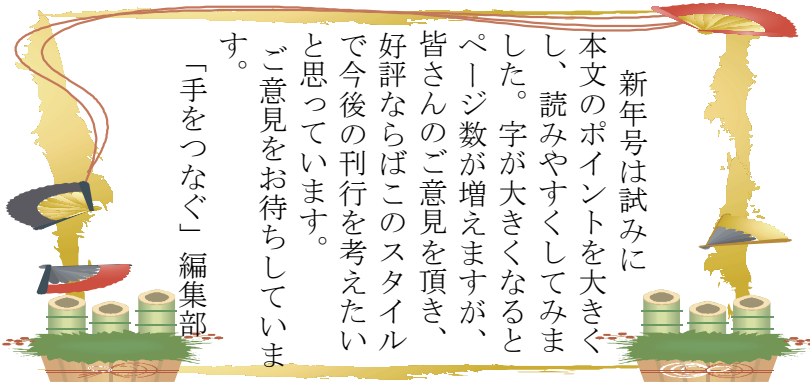 新年号は試みに
本文のポイントを大きく
し、読みやすくしてみま
した。字が大きくなると
ページ数が増えますが、
皆さんのご意見を頂き、
好評ならばこのスタイル
で今後の刊行を考えたい
と思っています。
ご意見をお待ちしていま
す。
「手をつなぐ」編集部